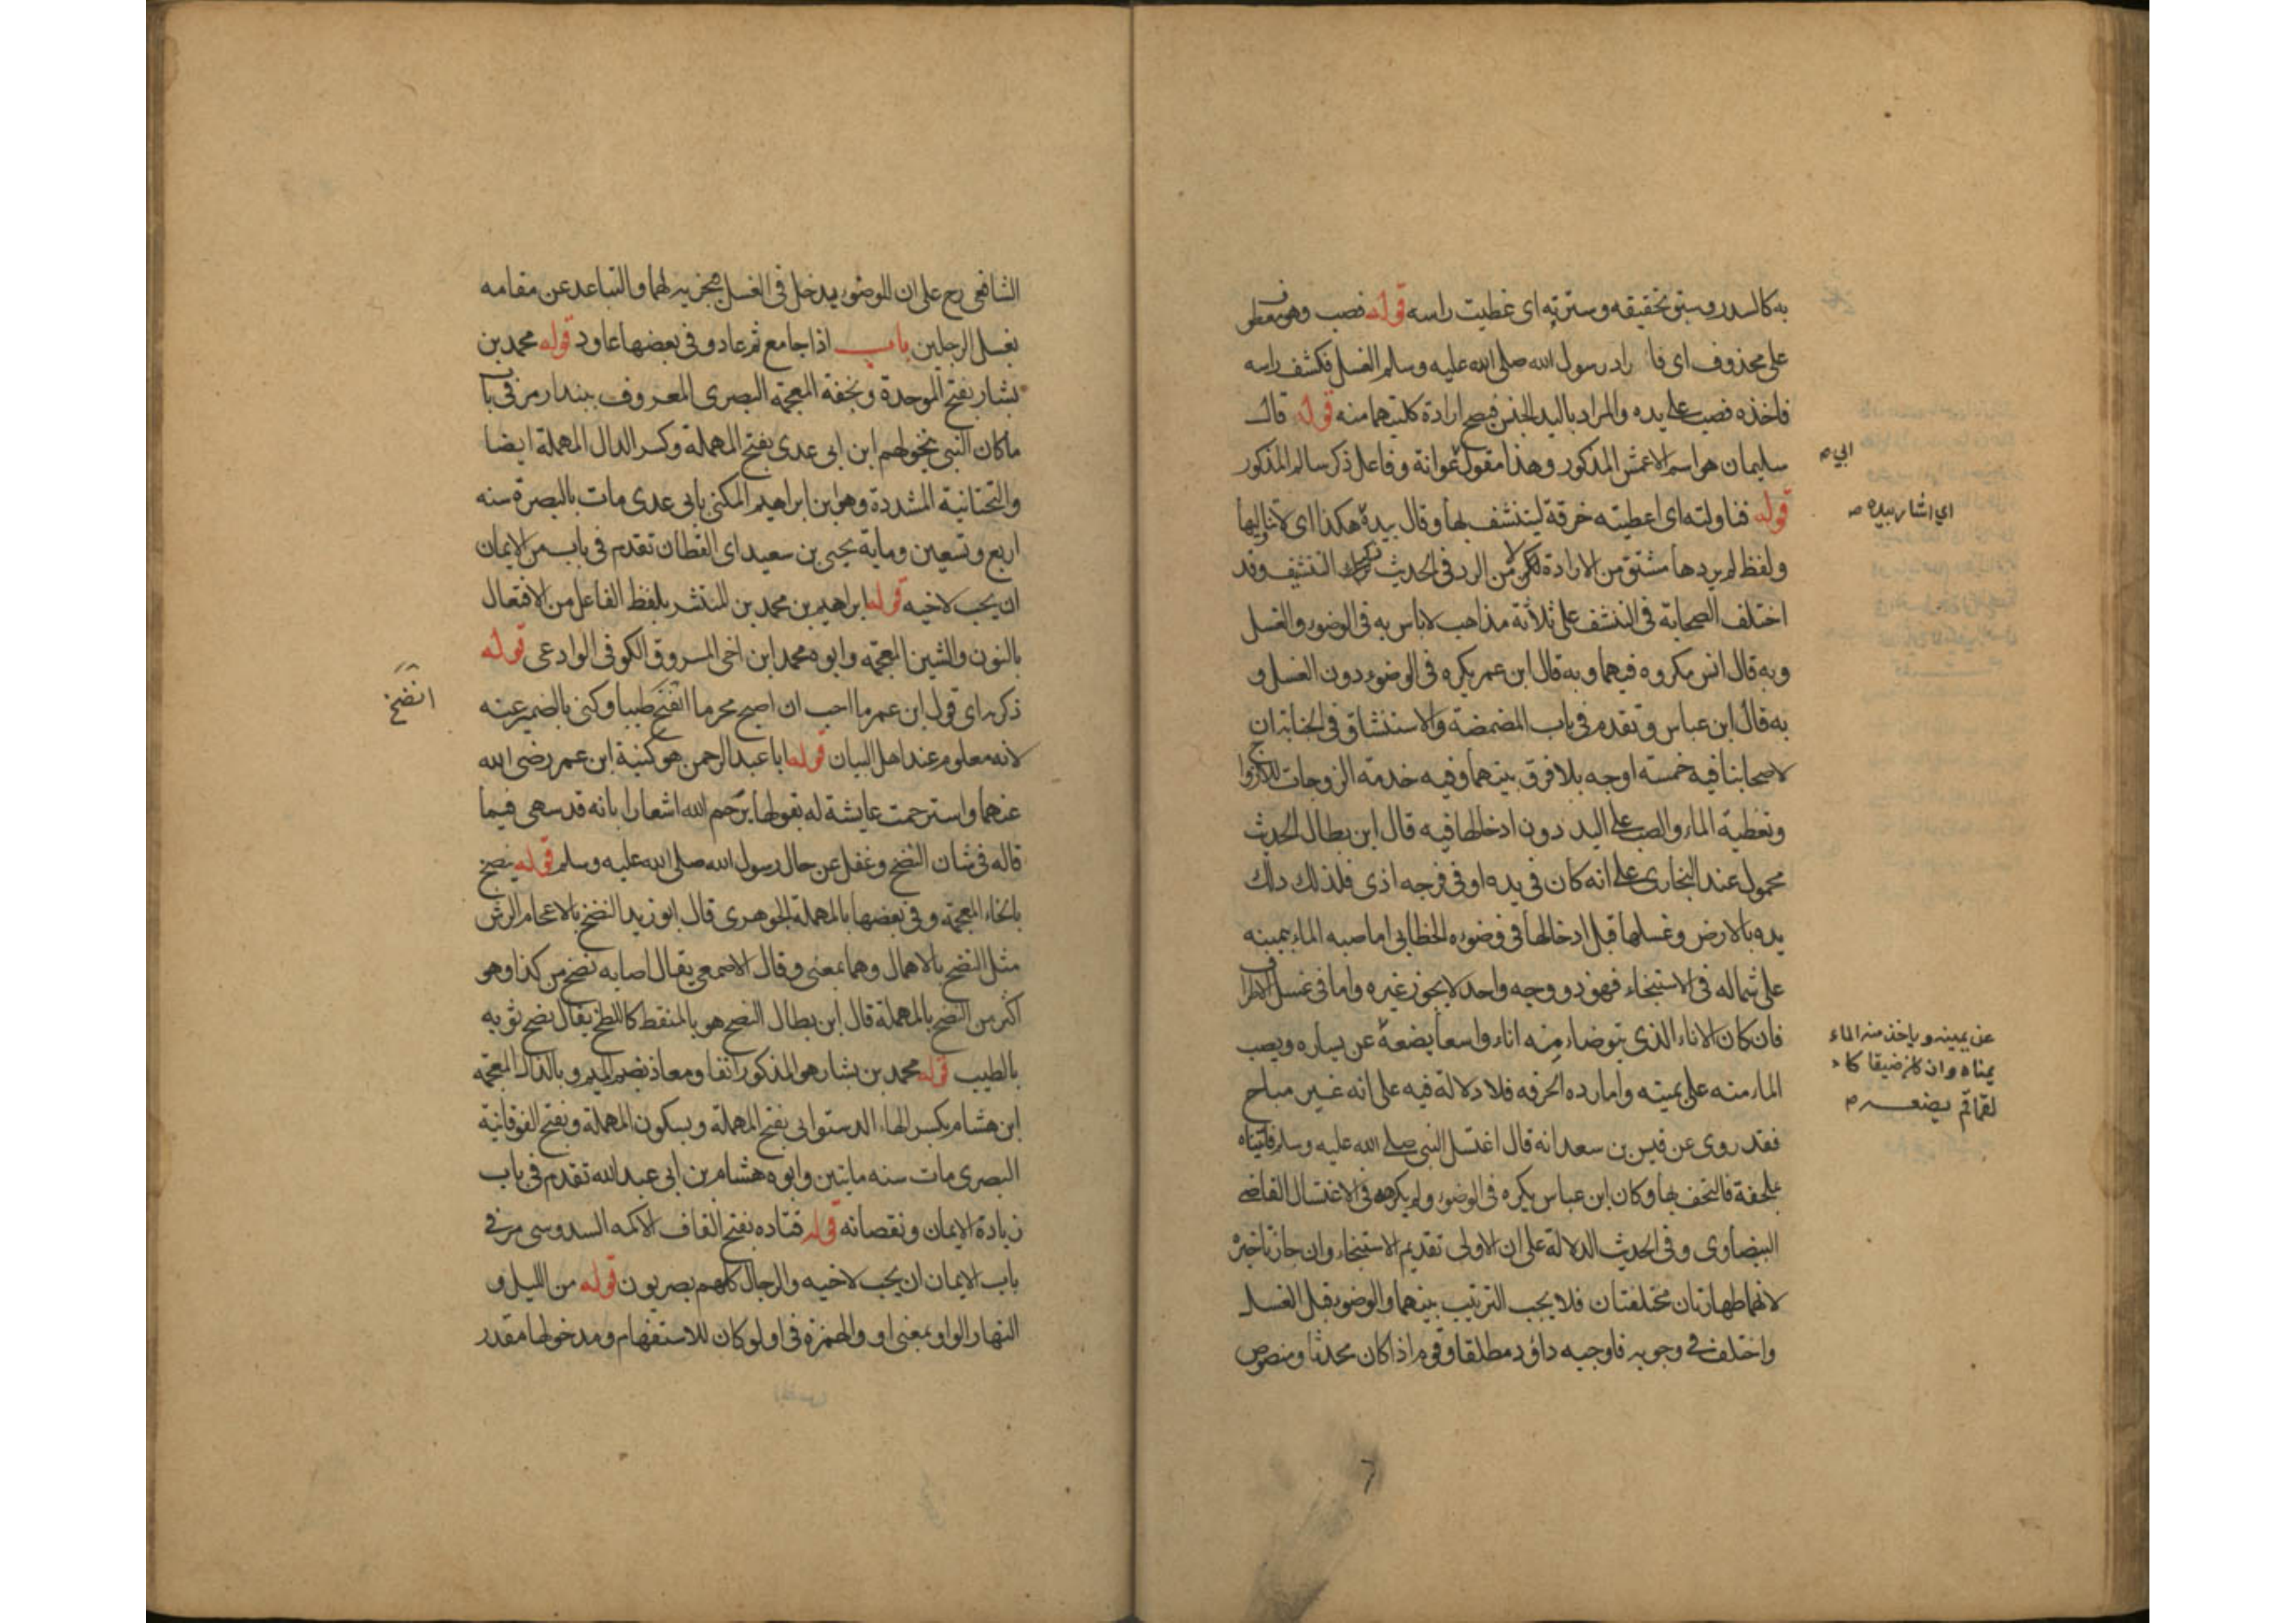 به كالسدر وسبق تحقيقه وسترته اى غطيت راسه قوله فصب وهو معطوف
على محذوف اى فا راد رسول الله صلى الله عليه وسلم الغسل فكشف راسه
فاخذه فصب على يده والمراد باليد الجنس فيصح ارادة كلتيهما منه قوله قال
سليمان هو اسم الاعمش المذكور وهذا مقول عوانة وفاعل ذكر سالم المذكور
ابي صـ
قوله فناولته اى اعطيته خرقة ليتنشف بها وقال بيده هكذا اى لا تناولنيها
اي اشار بيده صـ
ولفظ لم يردها مشتق من الارادة لا من الرد فى الحديث ترك التنشيف وقد
اختلف الصحابة فى التنشف على ثلاثة مذاهب لاباس به فى الوضوء والغسل
وبه قال انس مكروه فيهما وبه قال ابن عمر يكره فى الوضوء دون الغسل و
به قال ابن عباس وتقدم فى باب المضمضة والاستنشاق فى الجنابة ان
لاصحابنا فيه خمسة اوجه بلا فرق بينهما وفيه خدمة الزوجات للازواج
وتغطية الماء والصب على اليد دون ادخالها فيه قال ابن بطال الحديث
محمول عند البخارى على انه كان فى يده او فى فرجه اذى فلذلك دلك
يده بالارض وغسلها قبل ادخالها فى وضوءه الخطابى اما صبه الماء بيمينه
على شماله فى الاستنجاء فهو ذو وجه واحد لا يجوز غيره واما فى غسل الاطراف
فان كان الاناء الذى يتوضاء منه اناء واسعا يضعه عن يساره ويصب
عن يمينه وياخذ منه الماء
يمناه وان كان ضيقا كا
لقماقم يضعه صـ
الماء منه على يمينه واما رده الخرقه فلا دلالة فيه على انه غير مباح
فقد روى عن قيس بن سعد انه قال اغتسل النبى صلى الله عليه وسلم فاتيناه
بملحفة فالتحف بها وكان ابن عباس يكره فى الوضوء ولم يكرهه فى الاغتسال القاضى
البيضاوى وفى الحديث الدلالة على ان الاولى تقديم الاستنجاء وان جاز تاخيره
لانهما طهارتان مختلفتان فلا يجب الترتيب بينهما والوضوء قبل الغسل
واختلف فى وجوبه فاوجبه داؤد مطلقا وقوم اذا كان محدثا ومنصوص
الشافعى رح على ان الوضوء يدخل فى الغسل فيجزيه لهما والتباعد عن مقامه
بغسل الرجلين باب اذا جامع ثم عاد وفى بعضها عاود قوله محمد بن
بشار بفتح الموحدة وبخفة المعجمة البصرى المعروف ببندار مر فى باب
ما كان النبى يتخولهم ابن ابى عدى بفتح المهملة وكسر الدال المهملة ايضا
والتحتانية المشددة وهو ابن ابراهيم المكنى بابى عدى مات بالبصرة سنه
اربع وتسعين وماية يحيى بن سعيد اى القطان تقدم فى باب من الايمان
ان يحب لاخيه قوله ابراهيم بن محمد بن المنتشر بلفظ الفاعل من الافتعال
بالنون والشين المعجمة وابوه محمد ابن اخى المسروق الكوفى الوادعى قوله
ذكرته اى قول ابن عمر ما احب ان اصبح محرما انضخ طيبا وكنى بالضمير عنه
انضخ
لانه معلوم عند اهل البيان قوله ابا عبد الرحمن هو كنية ابن عمر رضى الله
عنهما واسترحمت عايشة له بقولها يرحم الله اشعارا بانه قد سهى فيما
قاله فى شان النضخ وغفل عن حال رسول الله صلى الله عليه وسلم قوله ينضخ
بالخاء المعجمة وفى بعضها بالمهملة الجوهرى قال ابو زيد النضخ بالاعجام الرش
مثل النضح بالاهمال وهما بمعنى وقال الاصمعى يقال اصابه نضخ من كذا وهو
اكثر من النضح بالمهملة قال ابن بطال النضخ هو بالمنقط كاللطخ يقال نضخ ثوبه
بالطيب قوله محمد بن بشار هو المذكور انفا ومعاذ بضم الميم وبالذال المعجمه
ابن هشام بكسر الهاء الدستوايى بفتح المهملة وبسكون المهملة وبفتح الفوقانية
البصرى مات سنه مايتين وابوه هشام بن ابى عبد الله تقدم فى باب
زيادة الايمان ونقصانه قوله قتاده بفتح القاف الاكمه السدوسى مر فى
باب الايمان ان يحب لاخيه والرجال كلهم بصريون قوله من الليل و
النهار الواو بمعنى او والهمزة فى اولو كان للاستفهام ومدخولها مقدر